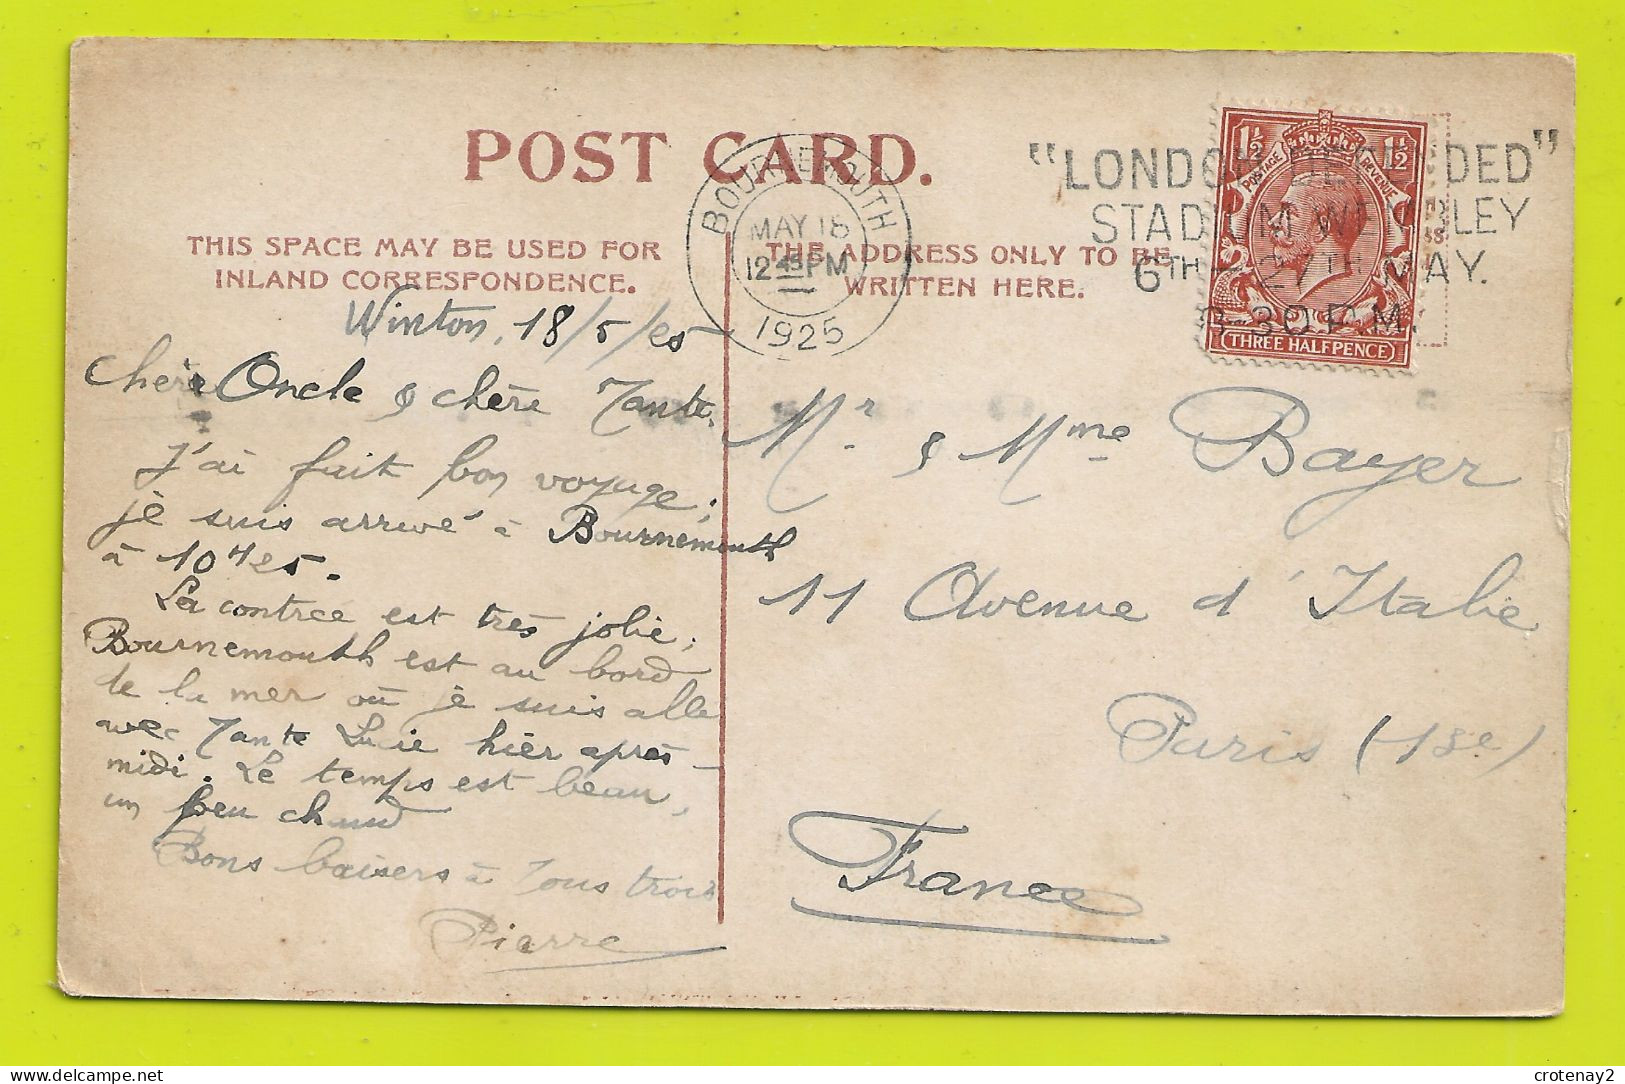 POST CARD.
THIS SPACE MAY BE USED FOR
INLAND CORRESPONDENCE.
THE ADDRESS ONLY TO BE
WRITTEN HERE.
BOURNEMOUTH
MAY 18
12 45 PM
1925
"LONDON DEFENDED"
STADIUM WEMBLEY
6TH - 27TH MAY.
8-30 P.M.
1½ 1½
POSTAGE REVENUE
THREE HALFPENCE
Winton, 18/5/25
Chère Oncle & chère Tante,
J'ai fait bon voyage;
je suis arrivé à Bournemouth
à 10H25.
La contrée est très jolie;
Bournemouth est au bord
de la mer où je suis allé
avec Tante Lucie hier après-
midi. Le temps est beau,
un peu chaud
Bons baisers à Tous trois
Pierre
Mr. & Mme Bayer
11 Avenue d'Italie
Paris (13e)
France
crotenay2